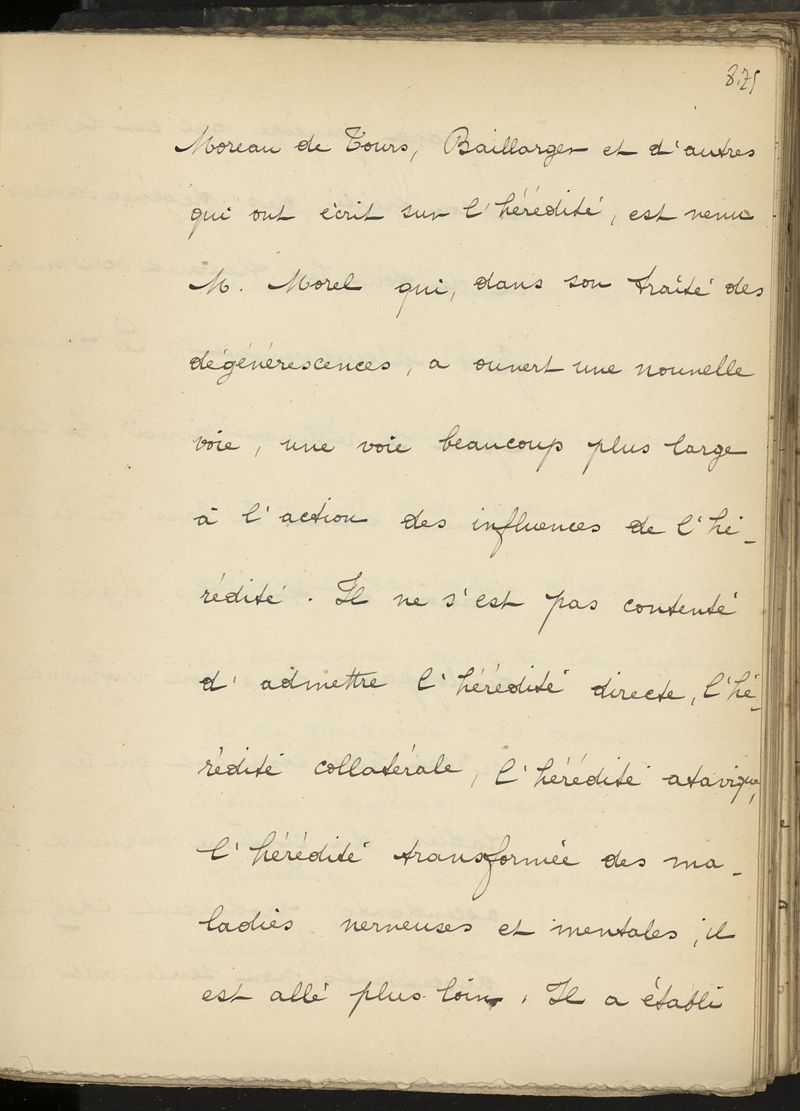 875
Moreau de Tours, Baillarger et d'autres
qui ont écrit sur l'hérédité, est venu
M. Morel qui, dans son traité des
dégénérescences, a ouvert une nouvelle
voie, une voie beaucoup plus large
à l'action des influences de l'hé-
rédité. Il ne s'est pas contenté
d'admettre l'hérédité directe, l'hé-
rédité collatérale, l'hérédité atavique,
l'hérédité transformée des ma-
ladies nerveuses et mentales, il
est allé plus loin. Il a établi